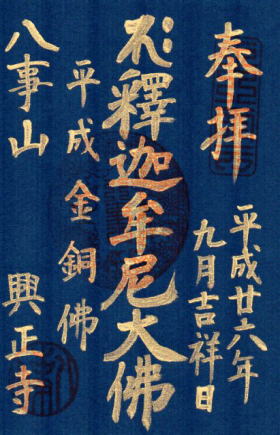 奉拝
平成廿六年
九月吉祥日
釋迦牟尼大佛
平成金銅佛
八事山
興正寺